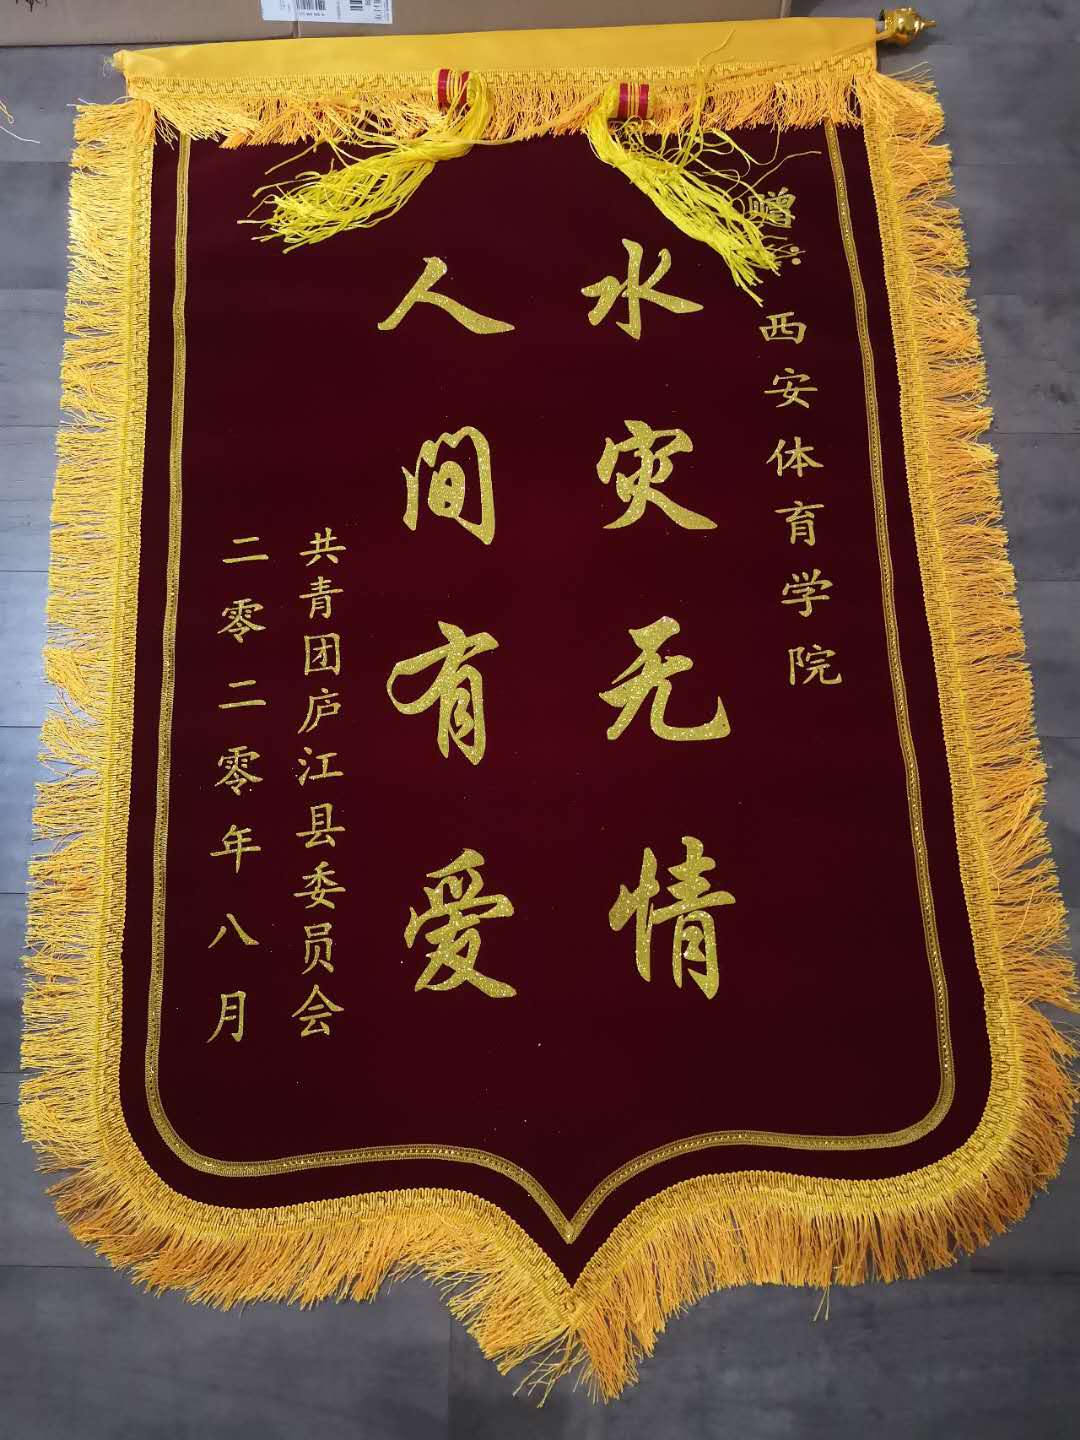 赠：西安体育学院
水灾无情
人间有爱
共青团庐江县委员会
二零二零年八月